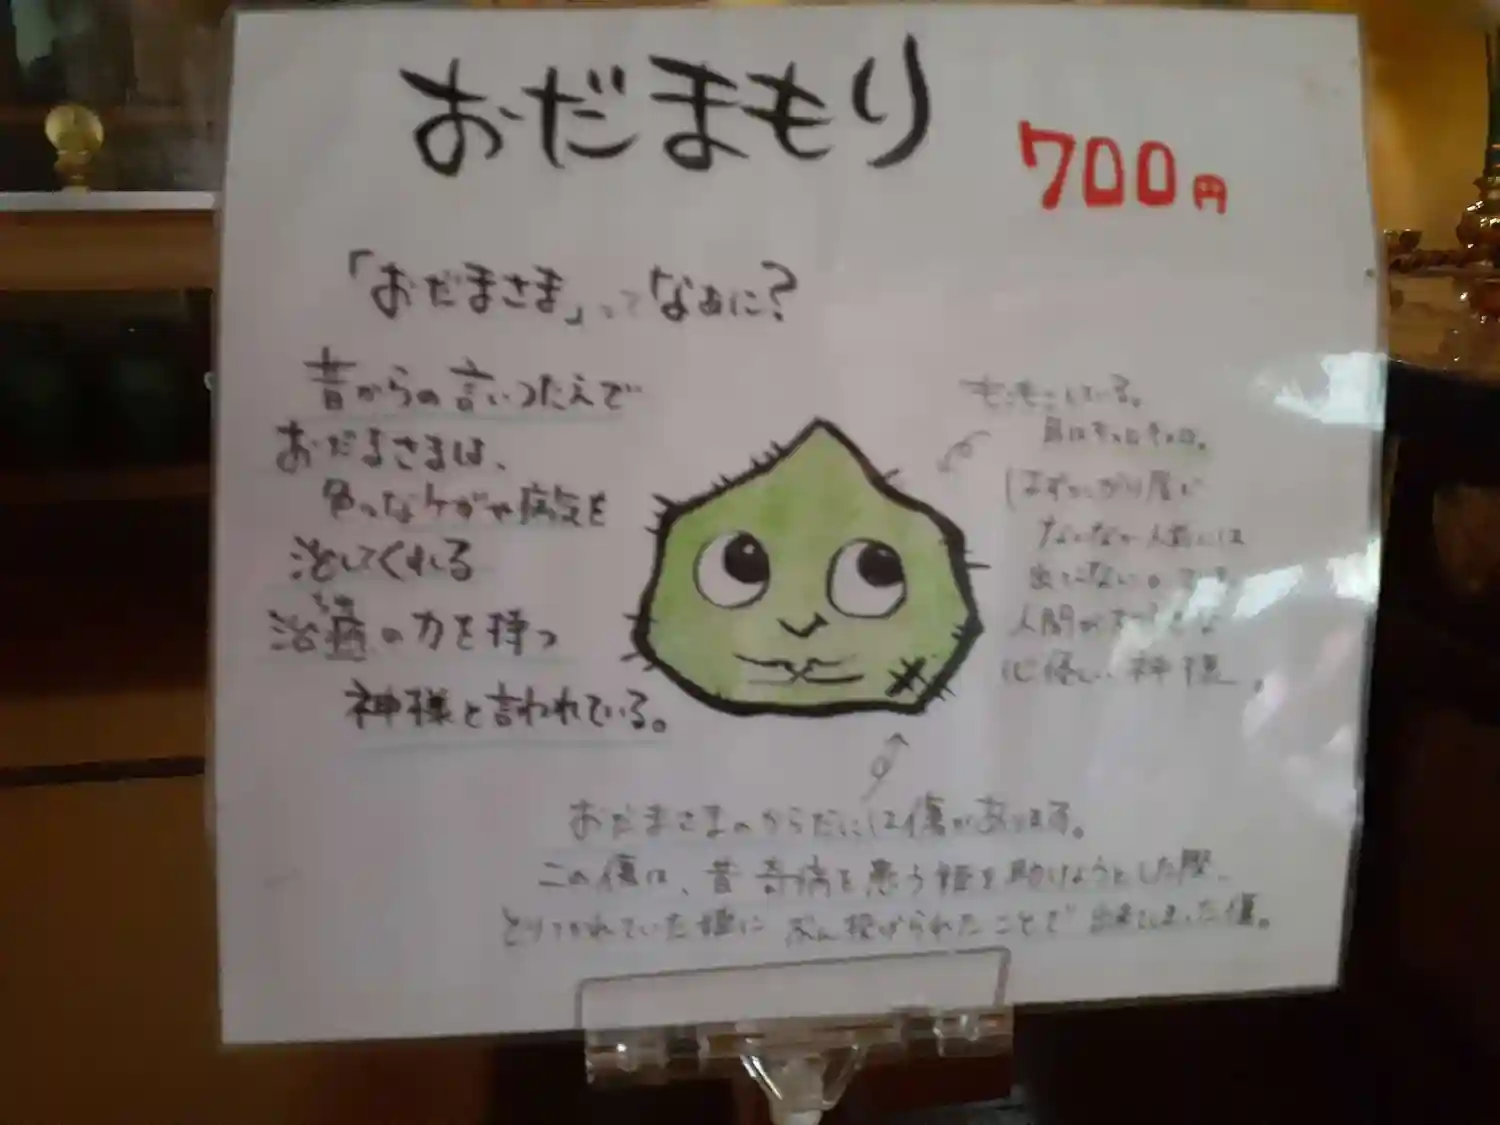 おだまもり
700円
「おだまさま」ってなぁに?
昔からの言いつたえで
おだまさまは、
色んなケガや病気を
治してくれる
治癒の力を持つ
神様と言われている。
モコモコしている。
目はキョロキョロ。
はずかしがり屋で
なかなか人前には
出てこない。
人間が
心優しい神様。
おだまさまのからだには傷があります。
この傷は、昔 奇病を患う姫を助けようとした際、
とりつかれていた姫に ぶん投げられたことで 出来てしまった傷。